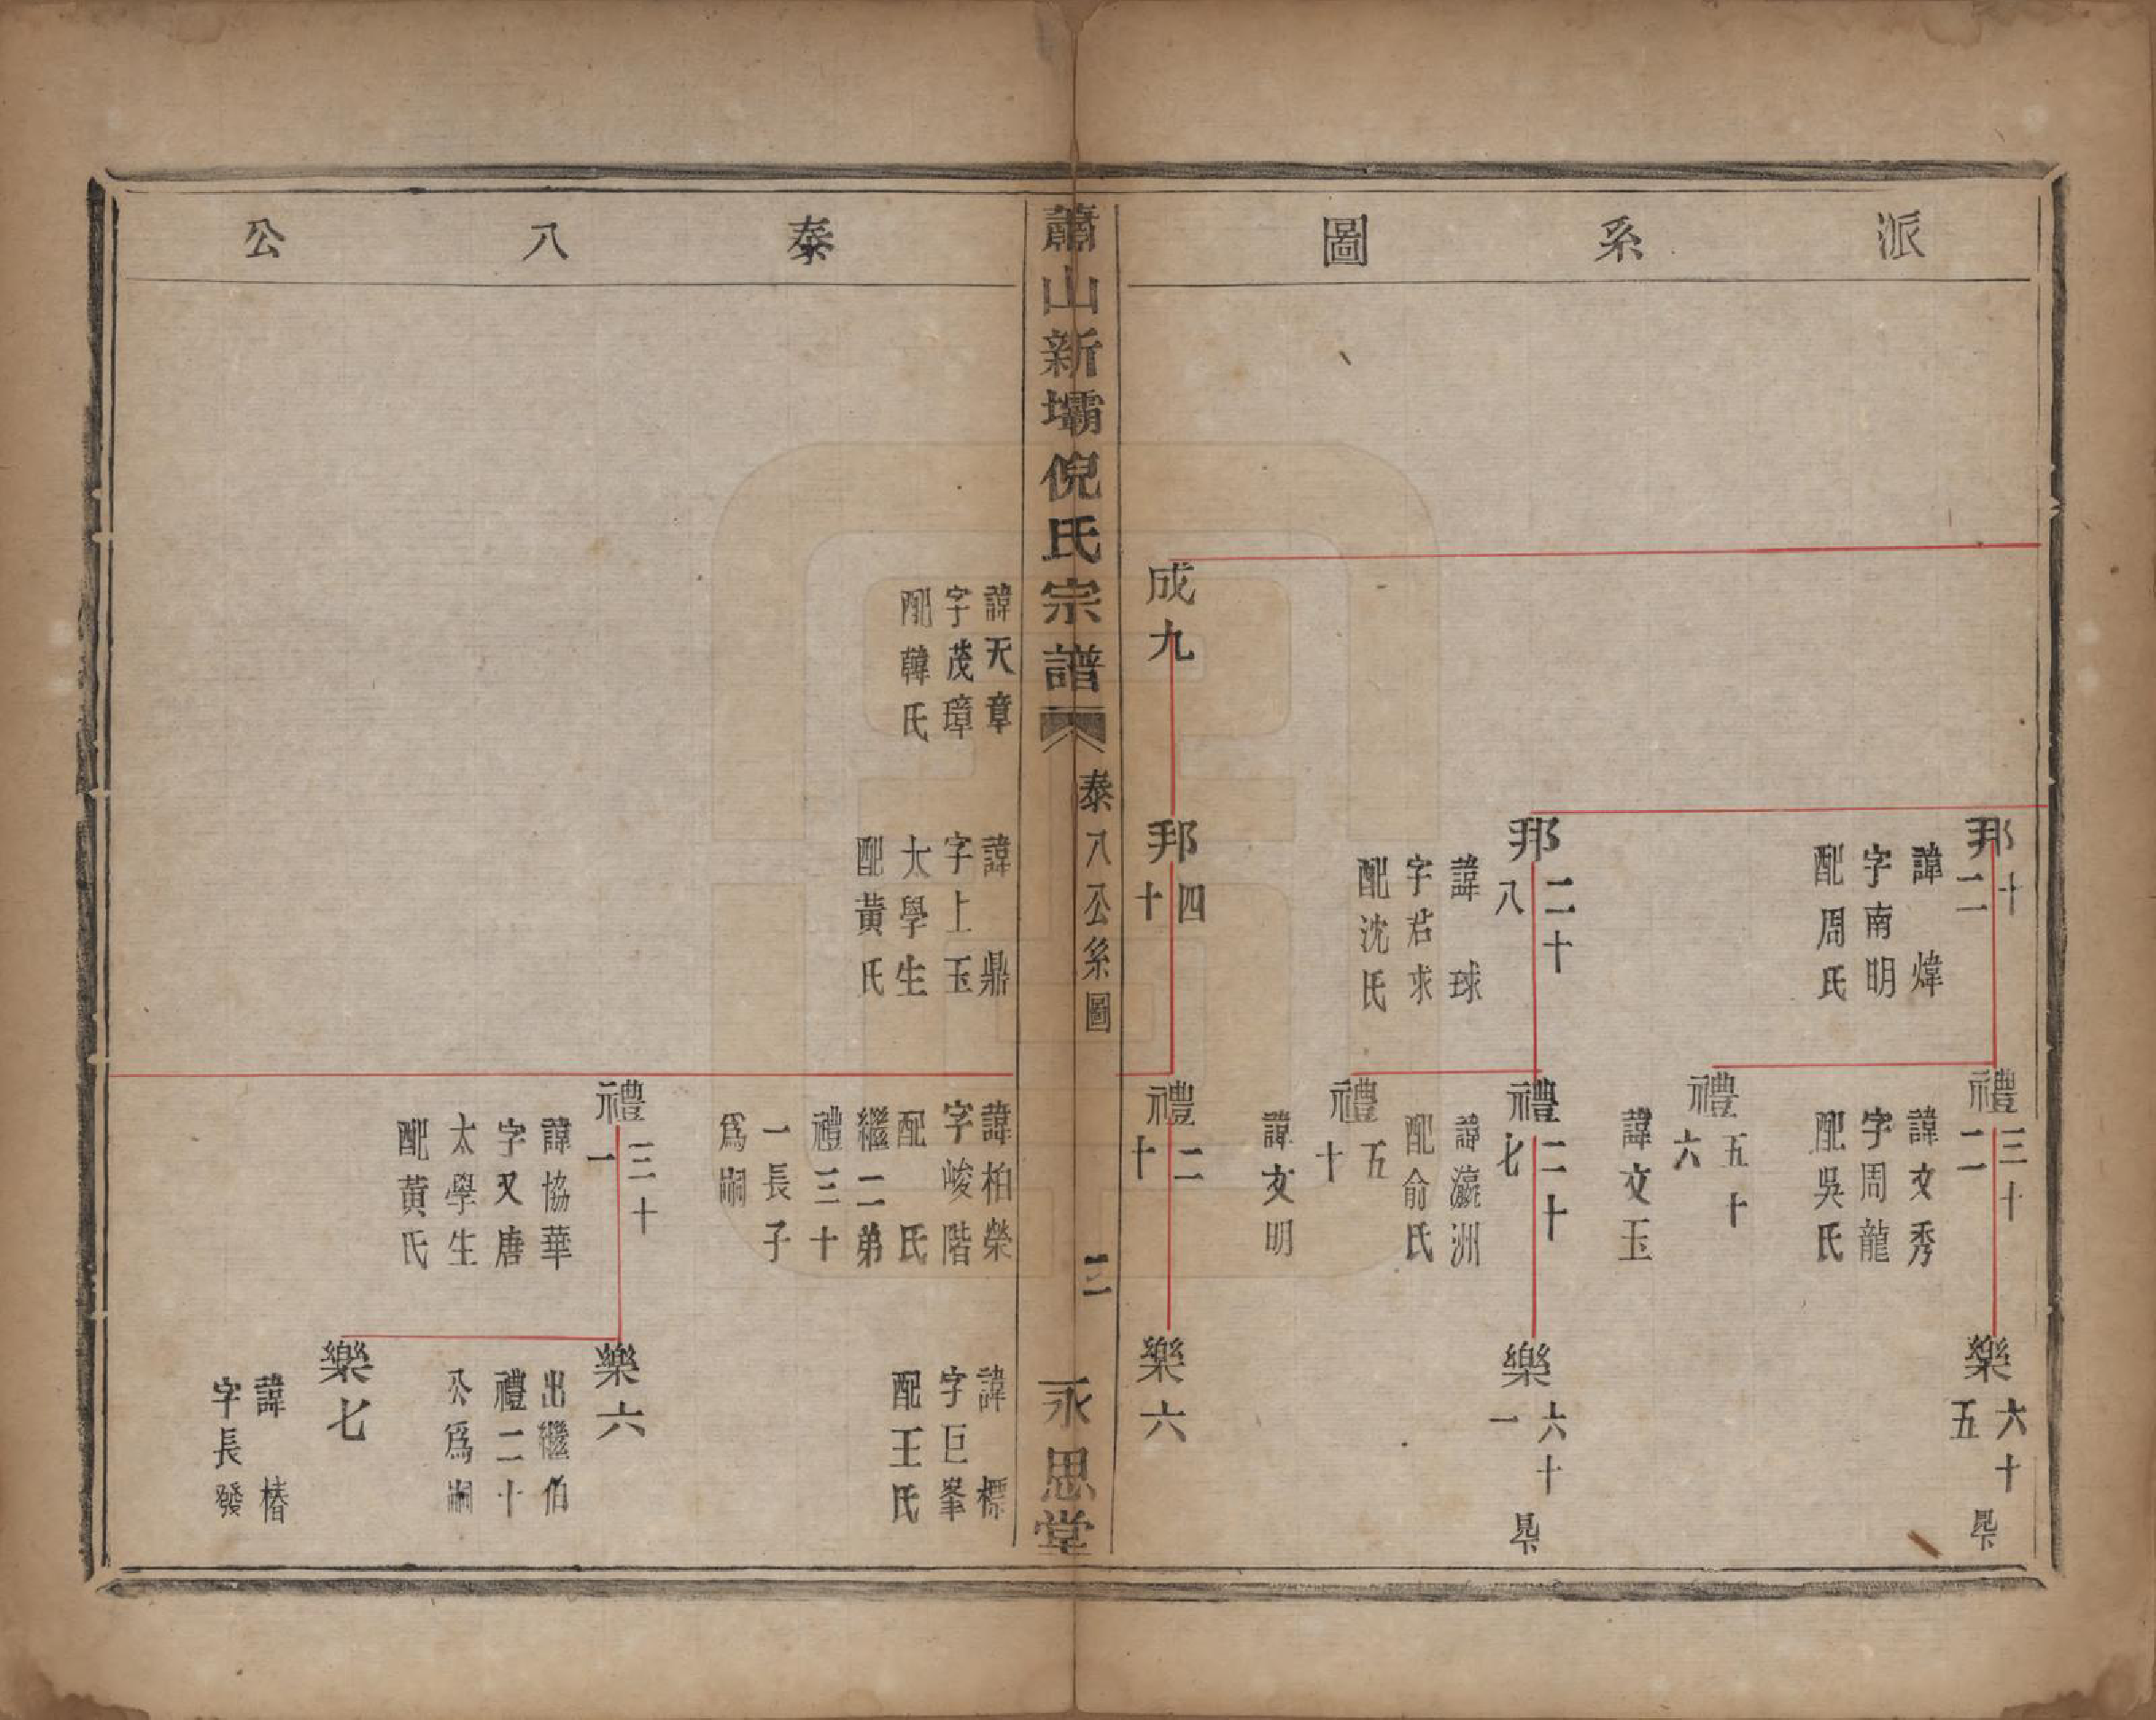 派系圖
邦十二
諱煒
字南明
配周氏
禮三十二
諱文秀
字周龍
配吳氏
樂六十五
禮五十六
諱文玉
邦二十八
諱球
字君求
配沈氏
禮二十七
諱瀛洲
配俞氏
樂六十一
禮五十
諱文明
成九
邦四十
禮二十
樂六
蕭山新壩倪氏宗譜
泰八公系圖
三
永思堂
泰八公
諱天章
字茂璋
配韓氏
諱鼎
字上玉
太學生
配黃氏
諱柏榮
字峻階
配氏
繼二弟
禮三十
一長子
為嗣
諱標
字巨峯
配王氏
禮三十一
諱協華
字又唐
太學生
配黃氏
樂六
出繼伯
禮二十
公為嗣
樂七
諱椿
字長發